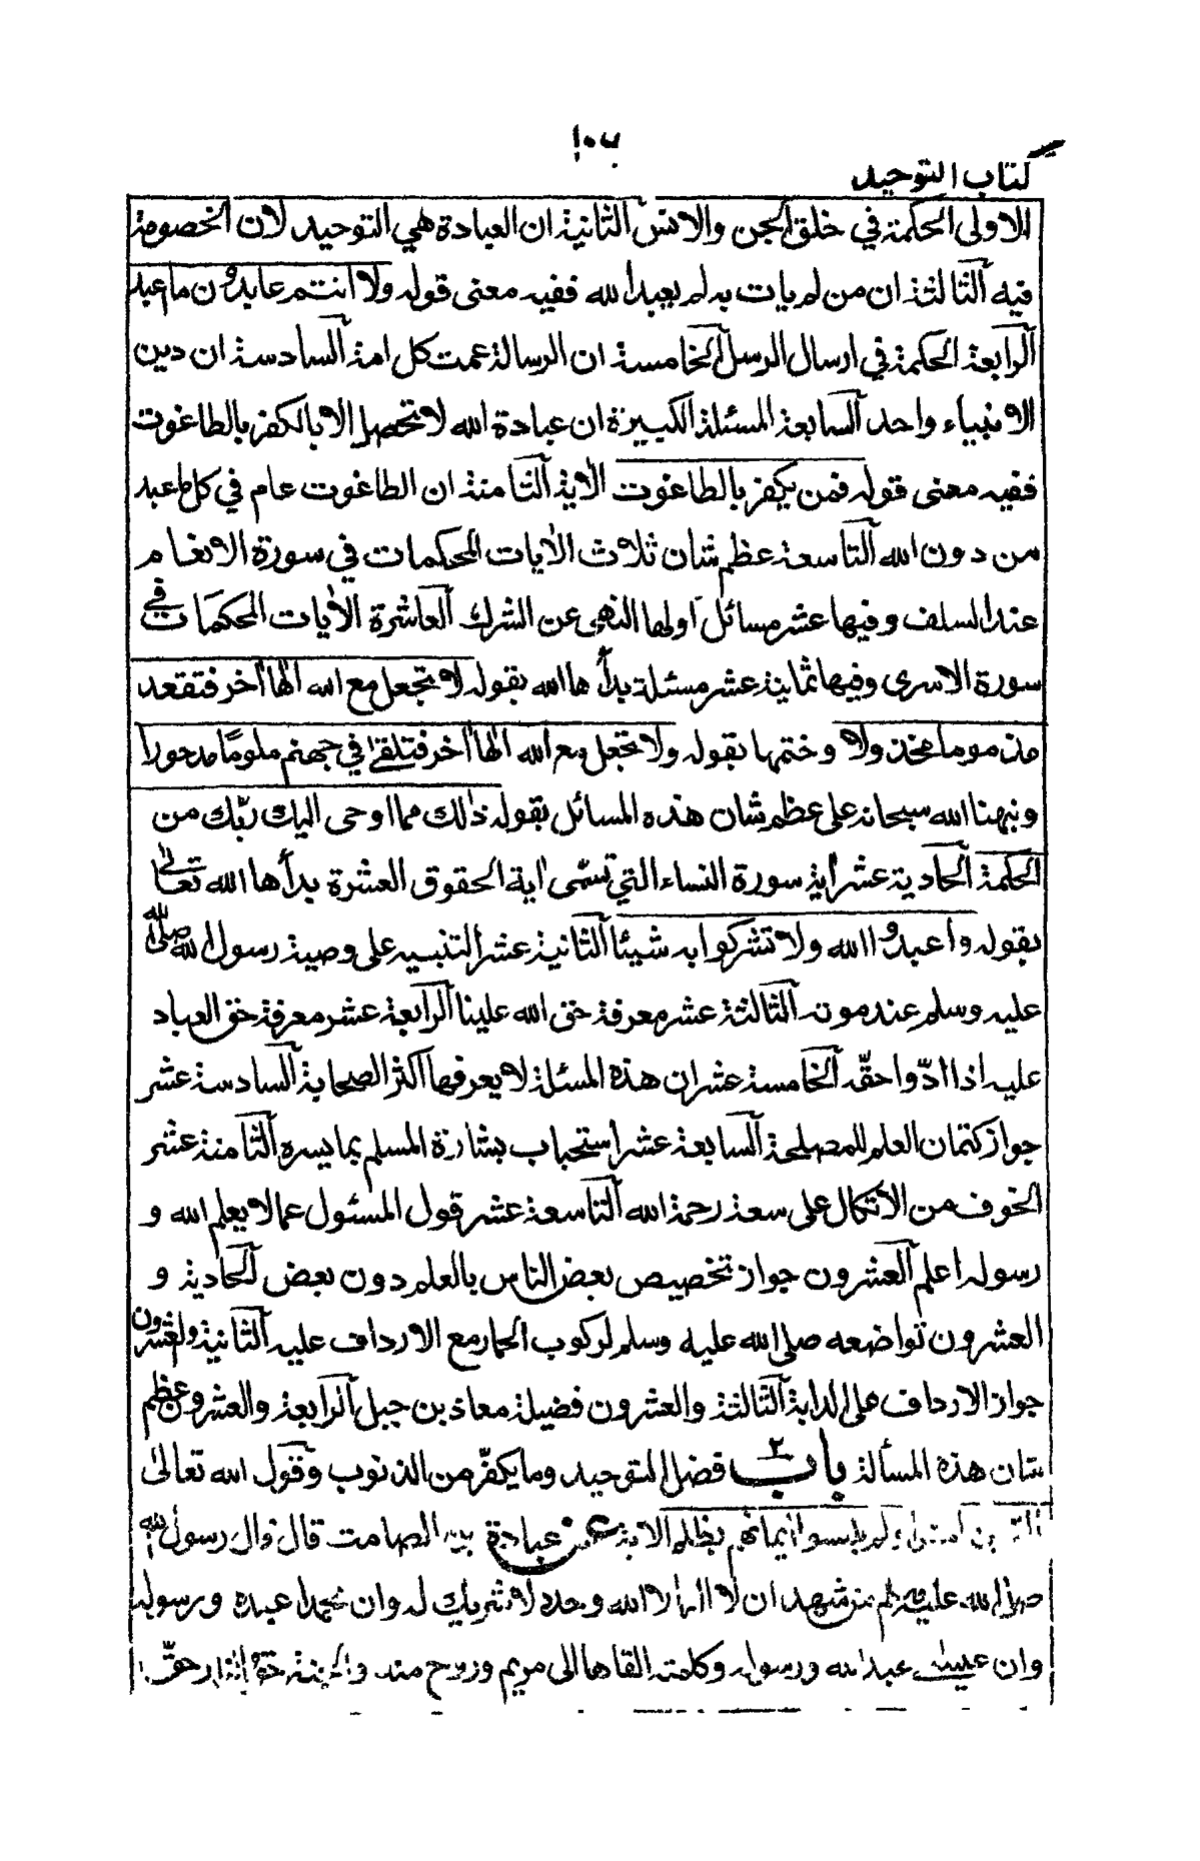 ١٠٦
كتاب التوحيد
الاولى الحكمة في خلق الجن والانس الثانية ان العبادة هي التوحيد لان الخصومة
فيه الثالثة ان من لم يات به لم يعبد الله ففيه معنى قوله ولا انتم عابدون ما عبد
الرابعة الحكمة في ارسال الرسل الخامسة ان الرسالة عمت كل امة السادسة ان دين
الانبياء واحد السابعة المسئلة الكبيرة ان عبادة الله لا تحصل الا بالكفر بالطاغوت
ففيه معنى قوله فمن يكفر بالطاغوت الأية الثامنة ان الطاغوت عام في كل ما عبد
من دون الله التاسعة عظم شان ثلاث الأيات المحكمات في سورة الانعام
عند السلف وفيها عشر مسائل اولها النهى عن الشرك العاشرة الأيات المحكمات في
سورة الاسرى وفيها ثمانية عشر مسئلة بدأها الله بقوله لا تجعل مع الله الها أخر فتقعد
مذموما مخذولا وختمها بقوله ولا تجعل مع الله الها أخر فتلقى في جهنم ملومًا مدحورا
ونبهنا الله سبحانه على عظم شان هذه المسائل بقوله ذلك مما اوحى اليك ربّك من
الحكمة الحادية عشر أية سورة النساء التي تسمّى أية الحقوق العشرة بدأها الله تعالى
بقوله واعبدوا الله ولا تشركوا به شيئا الثانية عشر التنبيه على وصية رسول الله صلى الله
عليه وسلم عند موته الثالثة عشر معرفة حق الله علينا الرابعة عشر معرفة حق العباد
عليه اذا ادّوا حقّه الخامسة عشر ان هذه المسئلة لا يعرفها اكثر الصحابة السادسة عشر
جواز كتمان العلم للمصلحة السابعة عشر استحباب بشارة المسلم بما يسره الثامنة عشر
الخوف من الاتكال على سعة رحمة الله التاسعة عشر قول المسئول عما لا يعلم الله و
رسوله اعلم العشرون جواز تخصيص بعض الناس بالعلم دون بعض الحادية و
العشرون تواضعه صلى الله عليه وسلم لركوب الحمار مع الارداف عليه الثانية والعشرون
جواز الارداف على الدابة الثالثة والعشرون فضيلة معاذ بن جبل الرابعة والعشرون عظم
شان هذه المسألة باب ٢ فضل التوحيد وما يكفّر من الذنوب وقول الله تعالىٰ
الذين امنوا ولم يلبسوا ايمانهم بظلم الاية عن عبادة بن الصامت قال قال رسول الله
صلى الله عليه وسلم من شهد ان لا اله الا الله وحده لا شريك له وان محمدا عبده ورسوله
وان عيسى عبد الله ورسوله وكلمته القاها الى مريم وروح منه والجنة حق والنار حقّ